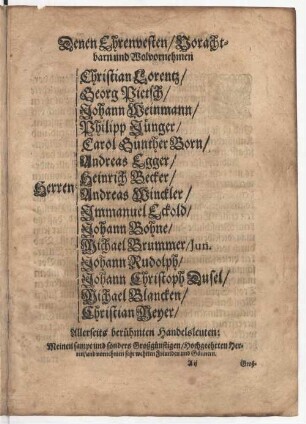 Denen Ehrenvesten/Voracht-
barn und Wolvornehmen
Christian Lorentz/
Georg Pietsch/
Johann Weinmann/
Philipp Jünger/
Carol Günther Born/
Andreas Egger/
Heinrich Becker/
Herren
Andreas Winckler/
Immanuel Eckold/
Johann Bohne/
Michael Brummer/Jun.
Johann Rudolph/
Johann Christoph Dusel/
Michael Blancken/
Christian Meyer/
Allerseits berühmten Handelsleuten:
Meinen sampt und sonders Großgünstigen/Hochgeehrten Her-
ren/und vornehmen sehr wehrten Freunden und Gönnern.
A ij Groß-